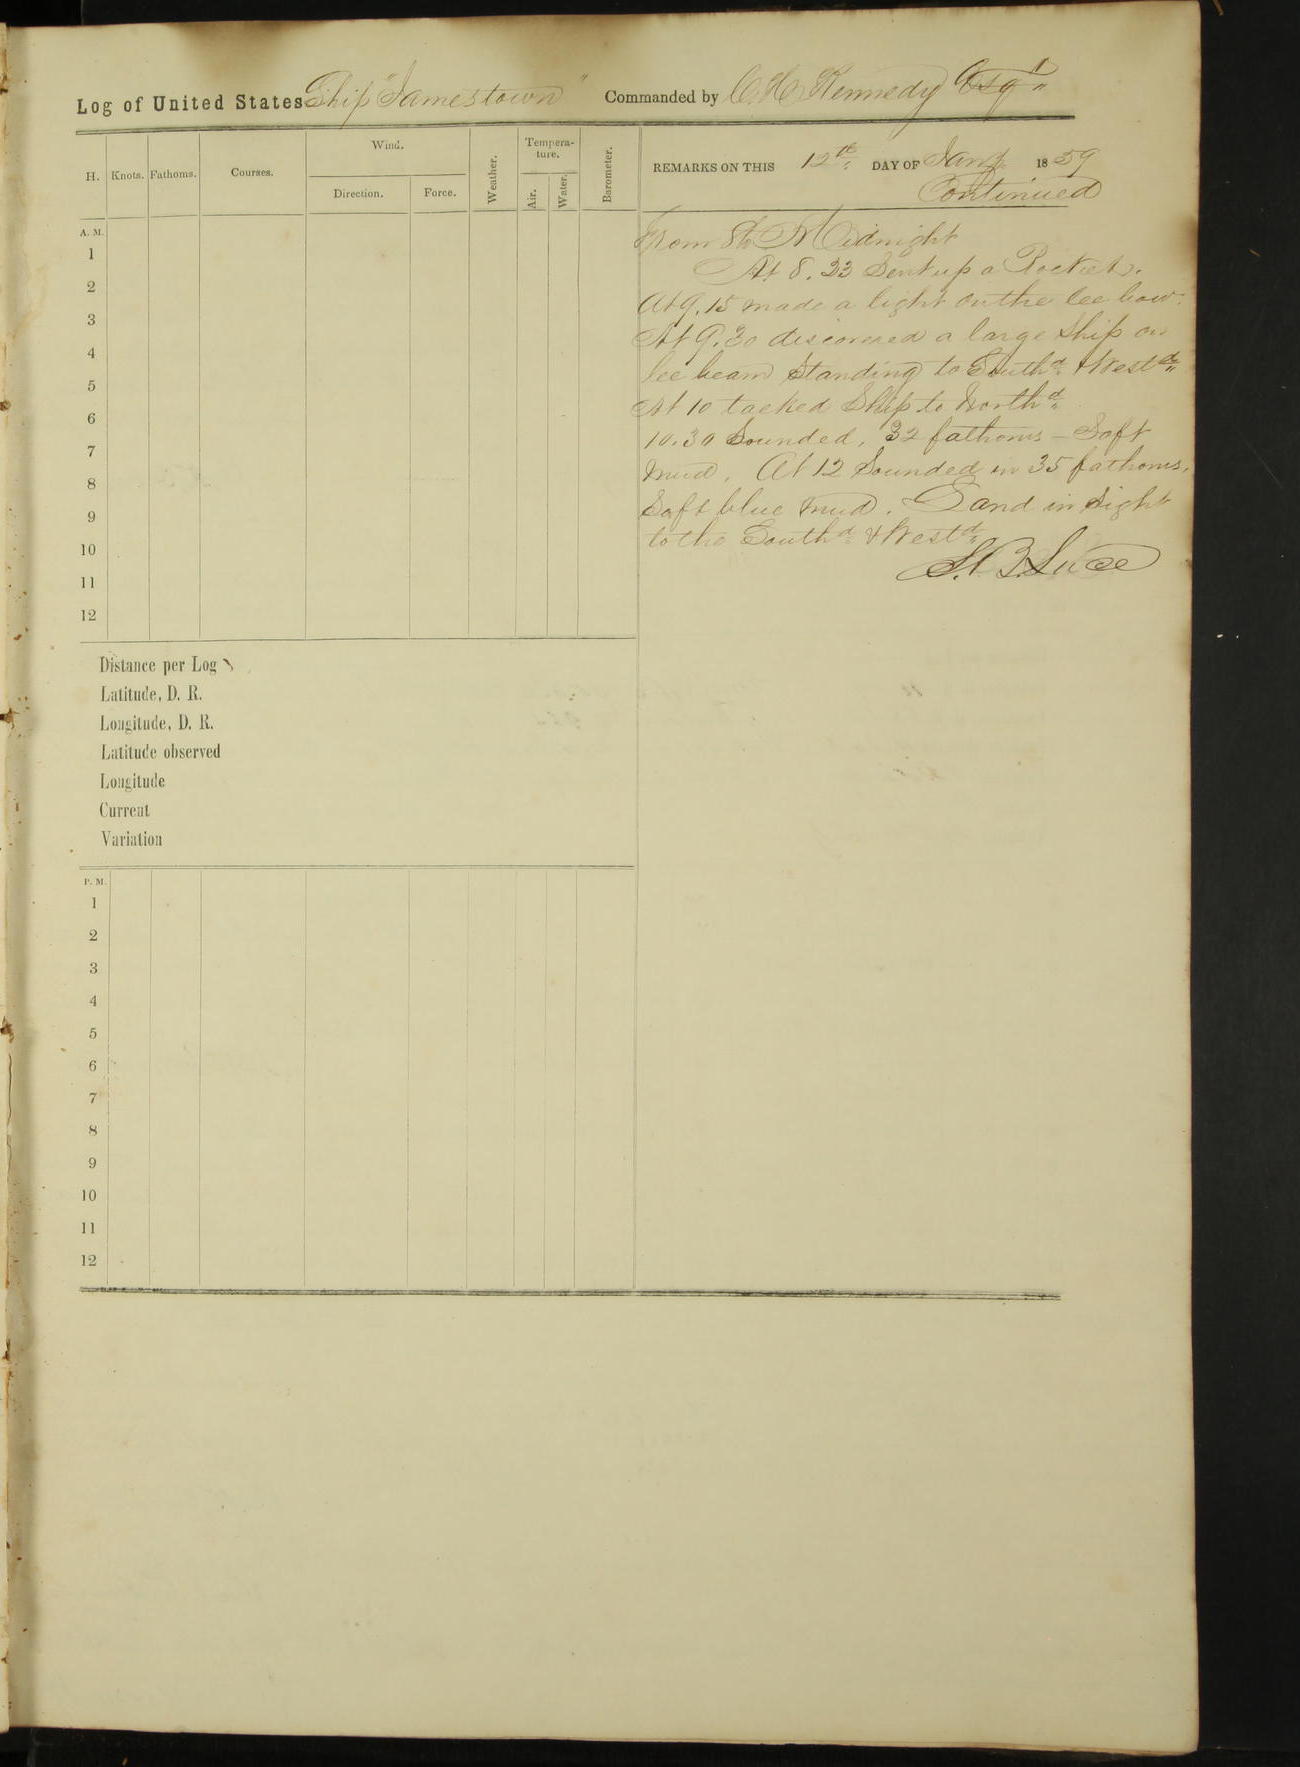 Log of United States Ship "Jamestown" Commanded by C. H. Kennedy Esqr
H. Knots. Fathoms. Courses. Wind. Direction. Force. Weather. Tempera-ture. Air. Water. Barometer.
REMARKS ON THIS 12th DAY OF Jany 1859
Continued
A. M.
1
2
3
4
5
6
7
8
9
10
11
12
From 8 to Midnight
At 8.23 Sent up a Rocket.
At 9.15 made a light on the lee bow.
At 9.30 discovered a large Ship on
lee beam Standing to Southd & Westd
At 10 tacked Ship to Northd
10.30 Sounded, 32 fathoms – Soft
Mud. At 12 Sounded in 35 fathoms,
Soft blue Mud. Land in Sight
to the Southd & Westd
S. B. Luce
Distance per Log
Latitude, D. R.
Longitude, D. R.
Latitude observed
Longitude
Current
Variation
P. M.
1
2
3
4
5
6
7
8
9
10
11
12